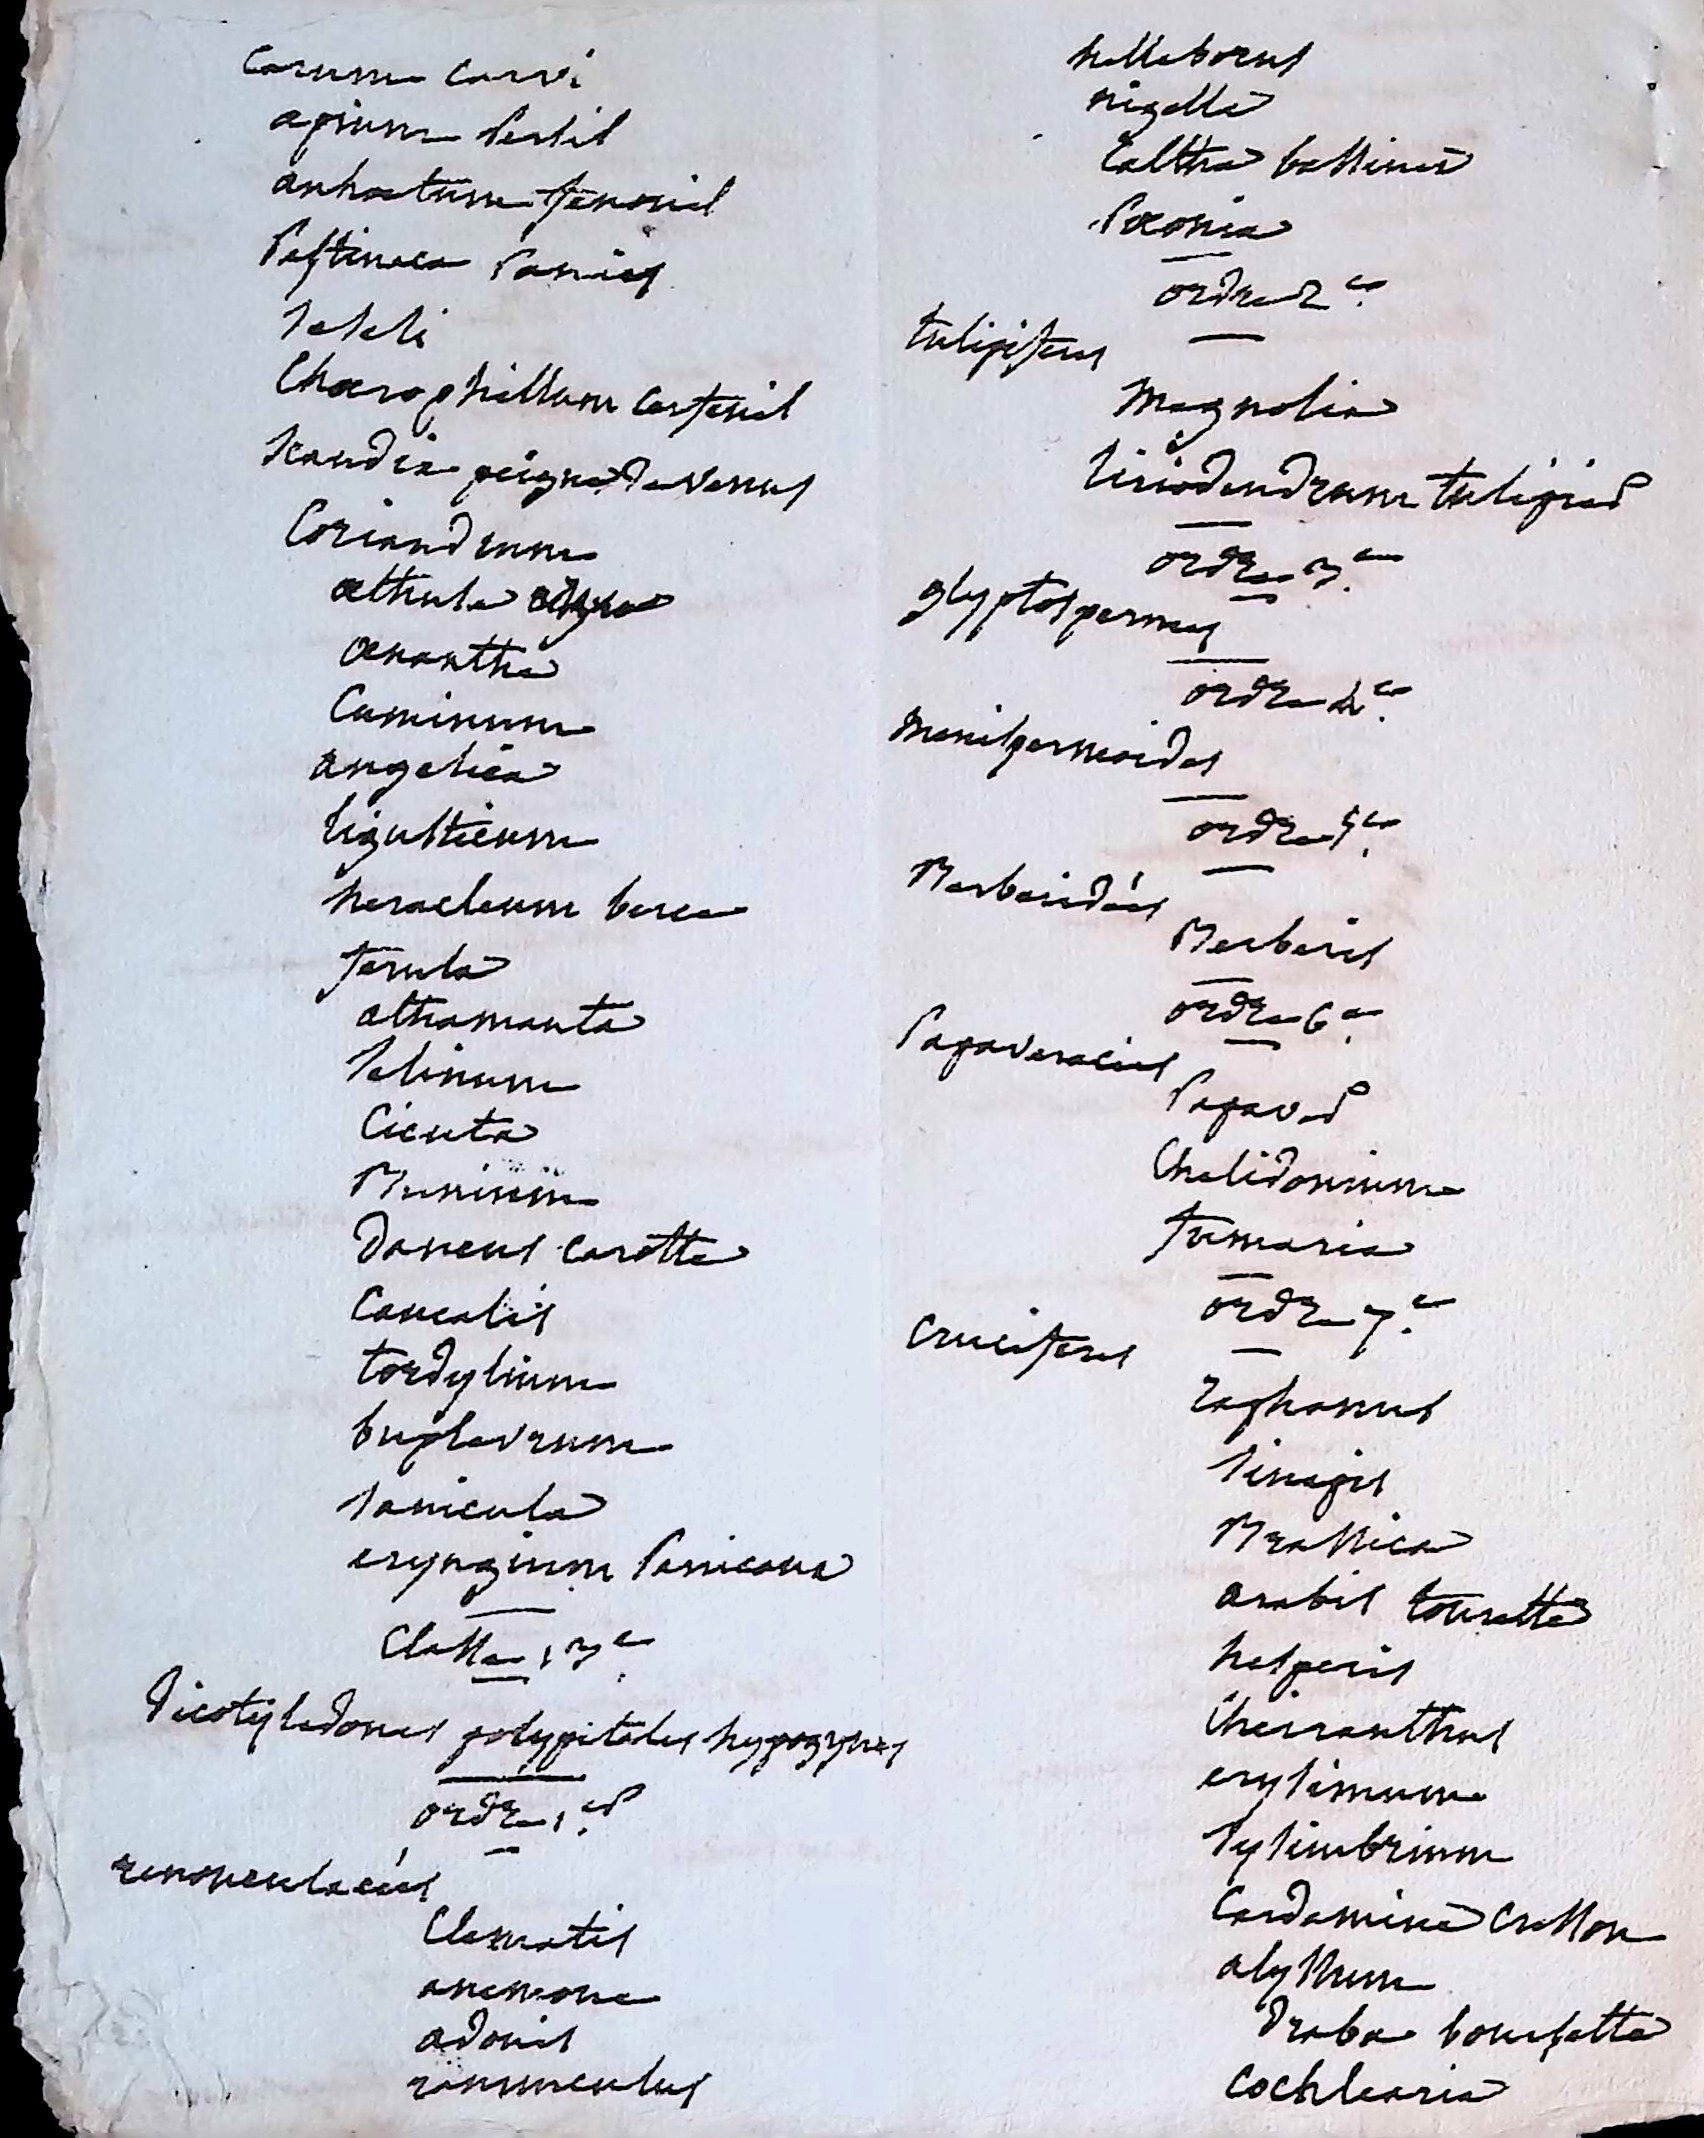 carum carvi
apium persil
anhœtum fenouil
Pastinaca Panais
seseli
Chœrophillum cerfeuil
scandix peigne de venus
Coriandrum
æthusa
œnanthe
Cuminum
angelica
ligusticum
heracleum berce
ferula
athamanta
selinum
Cicuta
Bunium
Daucus carotte
Caucalis
tordylium
buplevrum
sanicula
eryngium Panicaut
Classe 13e.
Dicotyledones polypetales hypogynes
ordre 1er.
renonculacées
Clematis
anemone
adonis
ranunculus
helleborus
nigella
Caltha bassinet
Pœonia
ordre 2e.
tulipiferes
Magnolia
liriodendrum tulipier
ordre 3e.
glyptospermes
ordre 4e.
Menispermoides
ordre 5e.
Berberidées
Berberis
ordre 6e.
Papaveracées
Papaver
Chelidonium
fumaria
ordre 7e.
cruciferes
raphanus
sinapis
Brassica
arabis tourette
hesperis
Cheiranthus
erysimum
sysimbrium
Cardamine cresson
alyssum
Draba
cochlearia